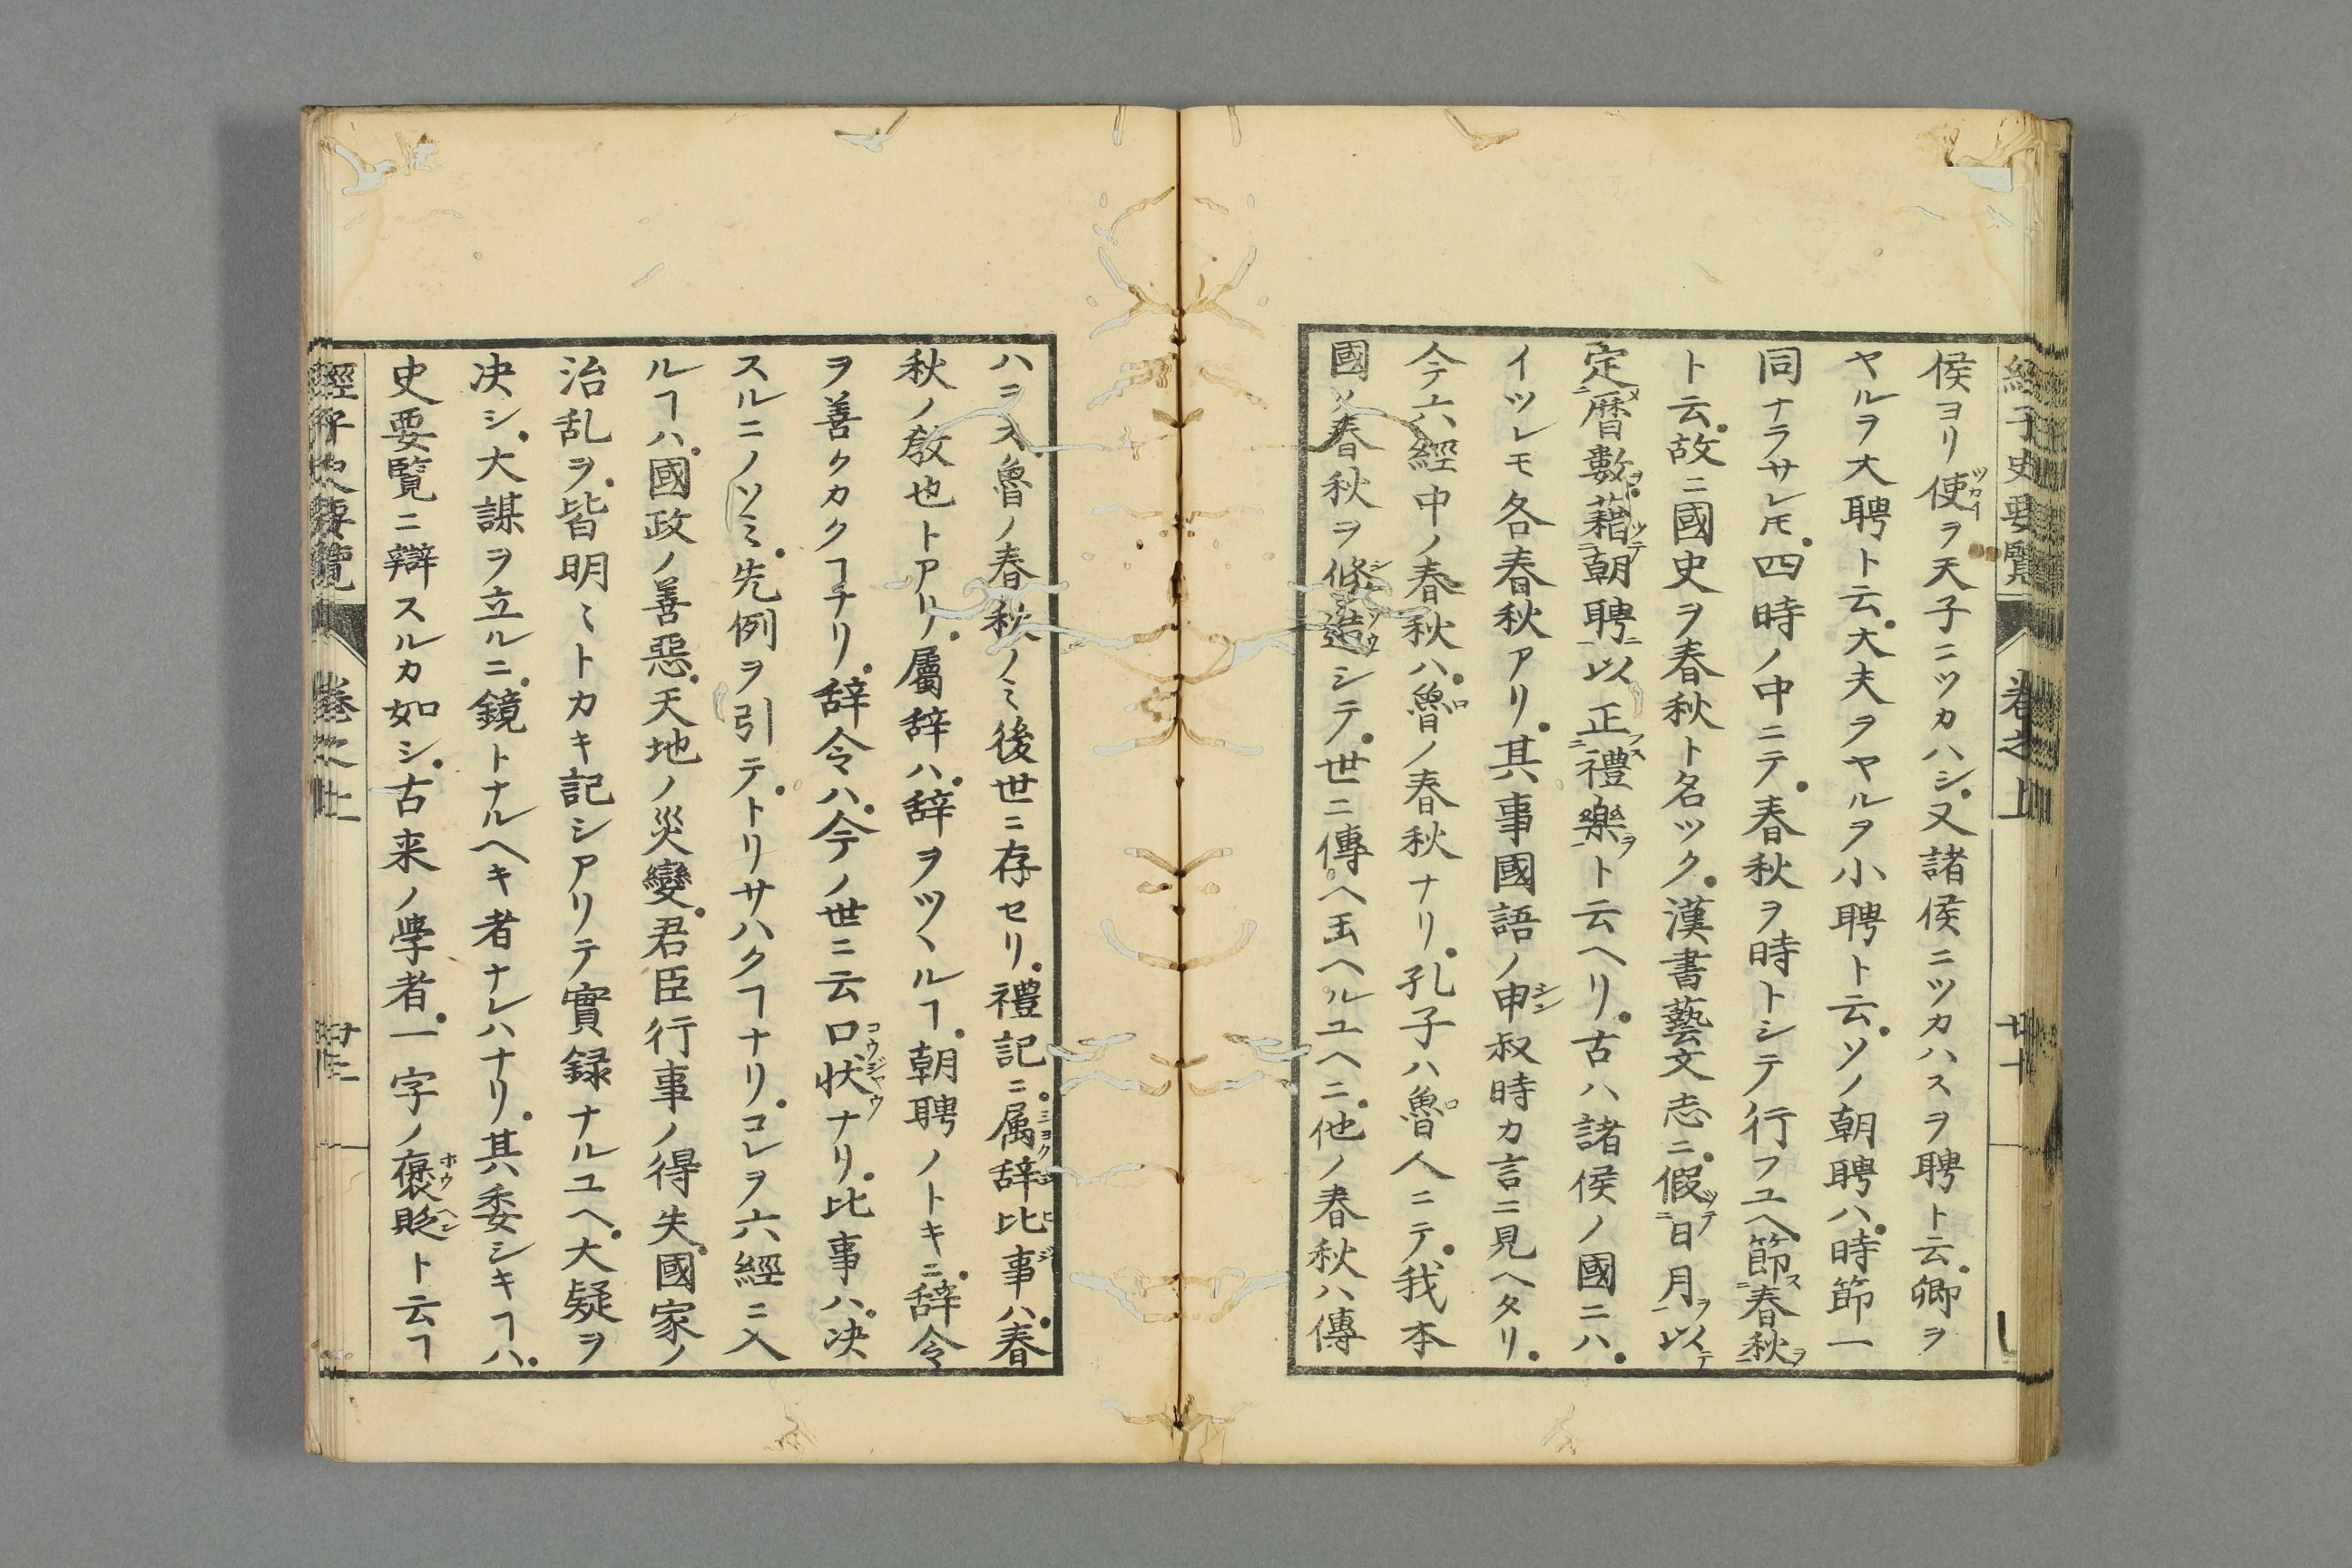 經子史要覽 卷之上 二十
侯ヨリ使ヲ天子ニツカハシ又諸侯ニツカハスヲ聘ト云卿ヲ
ヤルヲ大聘ト云大夫ヲヤルヲ小聘ト云ソノ朝聘ハ時節一
同ナラサレ𪜈四時ノ中ニテ春秋ヲ時トシテ行フユヘ節ス春秋ヲ
ト云故ニ國史ヲ春秋ト名ツク漢書藝文志ニ假ツテ日月ヲ以テ
定メ暦數ヲ藉ツテ朝聘ニ以正フス禮樂ヲト云ヘリ古ハ諸侯ノ國ニハ
イツレモ各春秋アリ其事國語ノ申叔時カ言ニ見ヘタリ
今六經中ノ春秋ハ魯ノ春秋ナリ孔子ハ魯人ニテ我本
國ノ春秋ヲ修造シテ世ニ傳ヘ玉ヘルユヘニ他ノ春秋ハ傳
ハラス魯ノ春秋ノミ後世ニ存セリ禮記ニ属辞比事ハ春
秋ノ敎也トアリ屬辞ハ辞ヲツヽルヿ朝聘ノトキニ辞令
ヲ善クカクヿナリ辞令ハ今ノ世ニ云口状ナリ比事ハ决
スルニノソミ先例ヲ引テトリサハクヿナリコレヲ六經ニ入
ルヿハ國政ノ善惡天地ノ災變君臣行事ノ得失國家ノ
治乱ヲ皆明ミトカキ記シアリテ實録ナルユヘ大疑ヲ
决シ大謀ヲ立ルニ鏡トナルヘキ者ナレハナリ其委シキヿハ
史要覽ニ辯スルカ如シ古来ノ學者一字ノ褒貶ト云ヿ
經子史要覽 卷之上